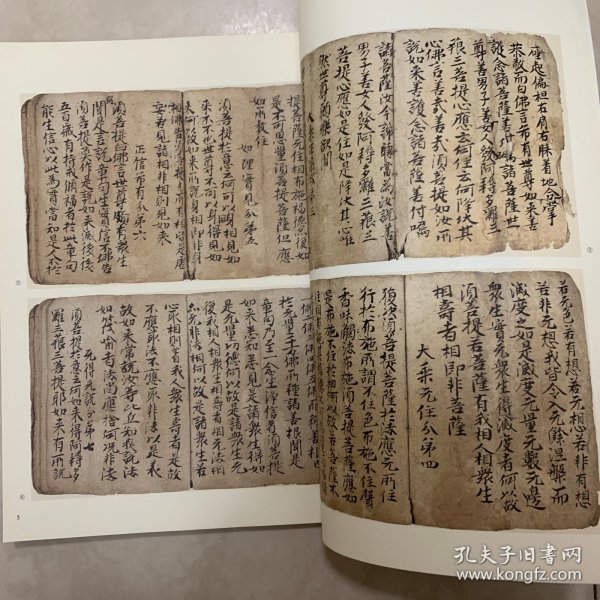 座起偏袒右肩右膝着地合掌
恭敬而白佛言希有世尊如来善
護念諸菩薩善付嘱諸菩薩世
尊善男子善女人發阿耨多羅三
藐三菩提心應云何住云何降伏其
心佛言善哉善哉須菩提如汝所
說如来善護念諸菩薩善付嘱
諸菩薩汝今諦聽當為汝說善
男子善女人發阿耨多羅三藐三
菩提心應如是住如是降伏其心唯
然世尊願樂欲聞
若无色若有想若无想若非有想
若非无想我皆令入无餘涅槃而
滅度之如是滅度无量无數无邊
衆生實无衆生得滅度者何以故
須菩提若菩薩有我相人相衆生
相壽者相即非菩薩
大乘无住分第四
復次須菩提菩薩於法應无所住
行於布施所謂不住色布施不住聲
香味觸法布施須菩提菩薩應如
是布施不住於相何以故若菩薩不
提菩薩无住相布施福德亦復如
是不可思量須菩提菩薩但應
如所教住
如理實見分第五
須菩提於意云何可以身相見如
来不不也世尊不可以身相得見如来
何以故如来所說身相即非身
相佛告須菩提凡所有相皆是虛
妄若見諸相非相則見如来
正信希有分第六
須菩提白佛言世尊頗有衆生
得聞如是言說章句生實信不佛告
須菩提莫作是說如来滅後後
五百歲有持戒脩福者於此章句
能生信心以此為實當知是人不於
於无量千万佛所種諸善根聞是
章句乃至一念生淨信者須菩提
如来悉知悉見是諸衆生得如
是无量福德何以故是諸衆生无
復我相人相衆生相壽者相无法相
亦无非法相何以故是諸衆生若
心取相則為着我人衆生壽者是故
不應取法不應取非法以是義
故如来常說汝等比丘知我說法
如筏喻者法尚應捨何况非法
无得无說分第七
須菩提於意云何如来得阿耨多
羅三藐三菩提耶如来有所說
5
孔夫子旧书网
www.kongfz.com